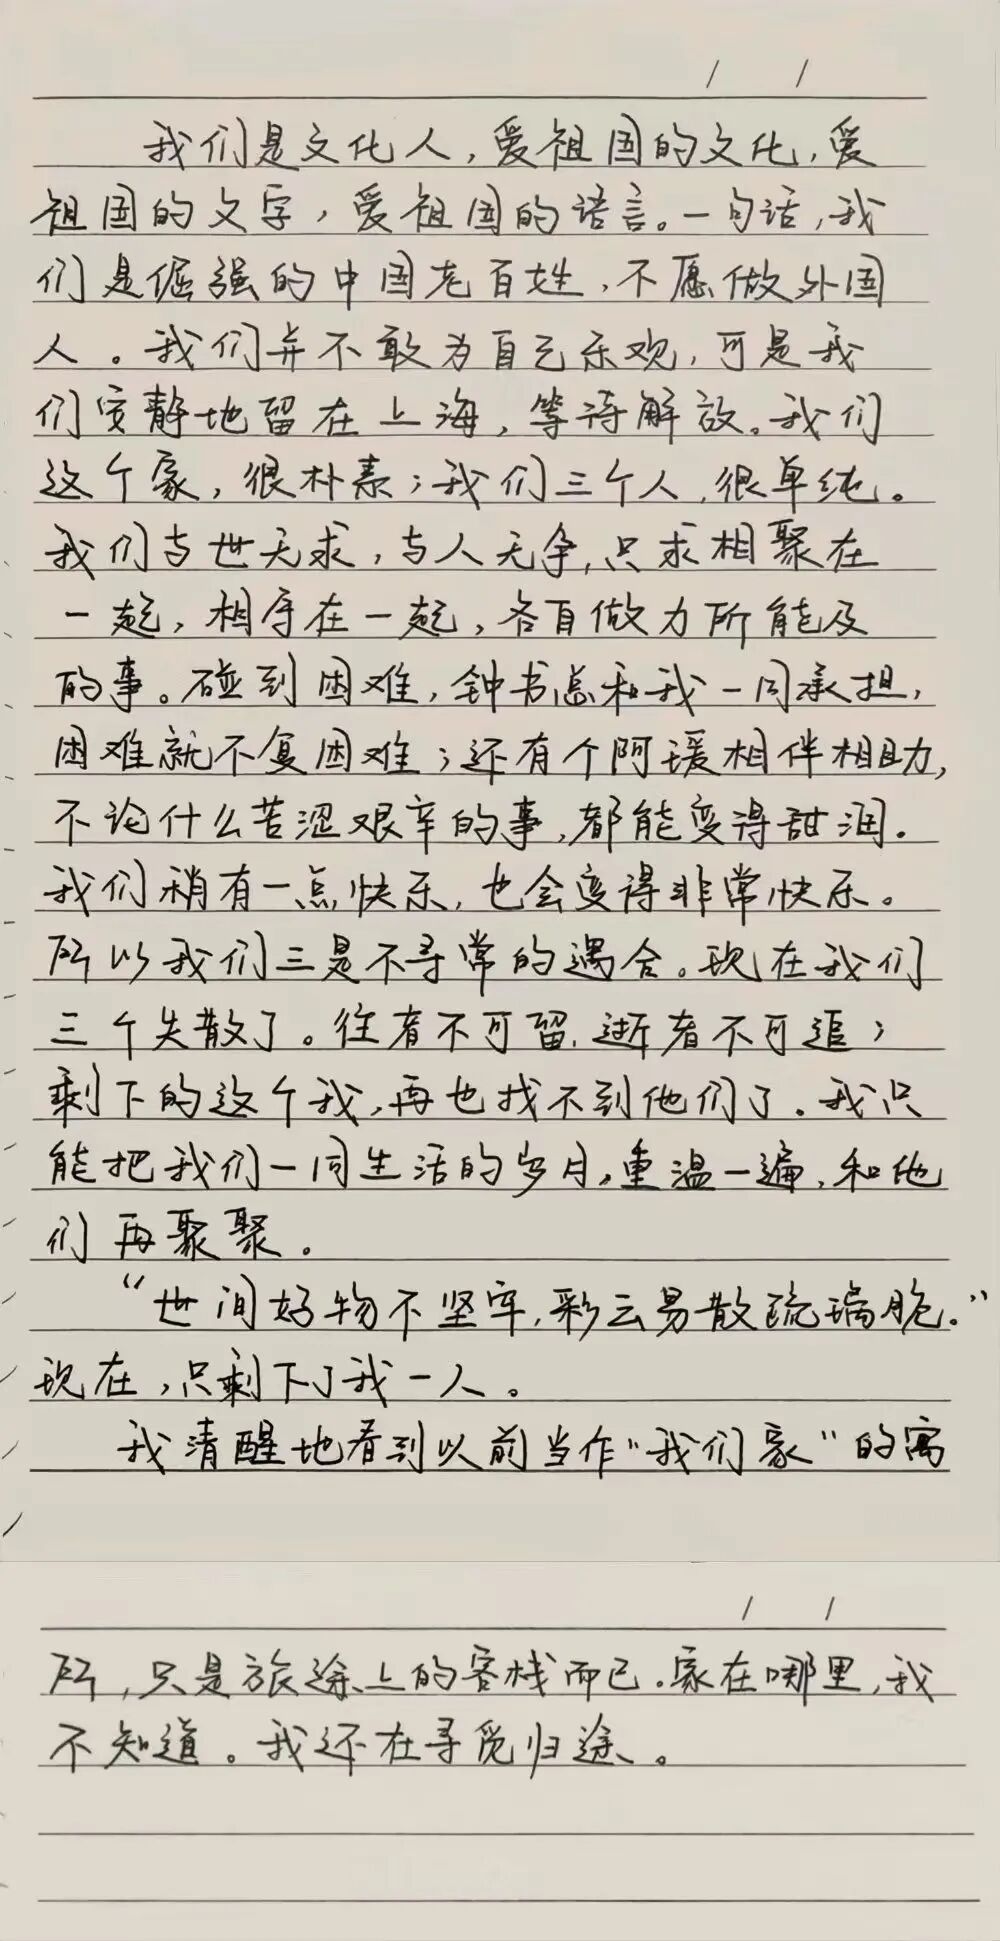 我们是文化人，爱祖国的文化，爱
祖国的文字，爱祖国的语言。一句话，我
们是倔强的中国老百姓，不愿做外国
人。我们并不敢为自己乐观，可是我
们安静地留在上海，等待解放。我们
这个家，很朴素；我们三个人，很单纯。
我们与世无求，与人无争，只求相聚在
一起，相守在一起，各自做力所能及
的事。碰到困难，钟书总和我一同承担，
困难就不复困难；还有个阿瑗相伴相助，
不论什么苦涩艰辛的事，都能变得甜润。
我们稍有一点快乐，也会变得非常快乐。
所以我们三是不寻常的遇合。现在我们
三个失散了。往者不可留，逝者不可追；
剩下的这个我，再也找不到他们了。我只
能把我们一同生活的岁月，重温一遍，和他
们再聚聚。
“世间好物不坚牢，彩云易散琉璃脆。”
现在，只剩下了我一人。
我清醒地看到以前当作“我们家”的寓
所，只是旅途上的客栈而已。家在哪里，我
不知道。我还在寻觅归途。